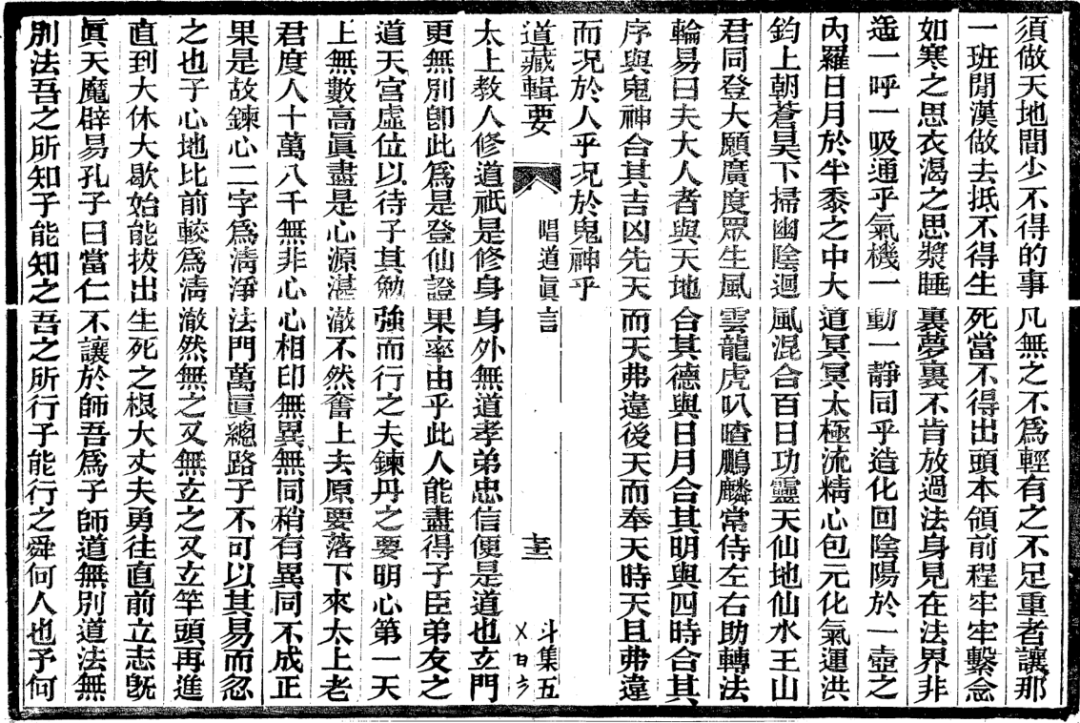 須做天地間少不得的事凡無之不爲輕有之不足重者讓那
一班閒漢做去抵不得生死當不得出頭本領前程牢牢繫念
如寒之思衣渴之思漿睡裏夢裏不肯放過法身見在法界非
遙一呼一吸通乎氣機一動一靜同乎造化回陰陽於一壺之
內羅日月於半黍之中大道冥冥太極流精心包元化氣運洪
鈞上朝蒼昊下掃幽陰迴風混合百日功靈天仙地仙水王山
君同登大願廣度眾生風雲龍虎叭喳鵬麟常侍左右助轉法
輪易曰夫大人者與天地合其德與日月合其明與四時合其
序與鬼神合其吉凶先天而天弗違後天而奉天時天且弗違
而况於人乎况於鬼神乎
道藏輯要 唱道眞言 斗集五
太上教人修道祇是修身身外無道孝弟忠信便是道也立門
更無別卽此爲是登仙證果率由乎此人能盡得子臣弟友之
道天宮虛位以待子其勉強而行之夫鍊丹之要明心第一天
上無數高眞盡是心源湛澈不然奮上去原要落下來太上老
君度人十萬八千無非心心相印無異無同稍有異同不成正
果是故鍊心二字爲清淨法門萬眞總路子不可以其易而忽
之也子心地比前較爲清澈然無之又無立之又立竿頭再進
直到大休大歇始能拔出生死之根大丈夫勇往直前立志旣
眞天魔辟易孔子曰當仁不讓於師吾爲子師道無別道法無
別法吾之所知子能知之吾之所行子能行之舜何人也予何